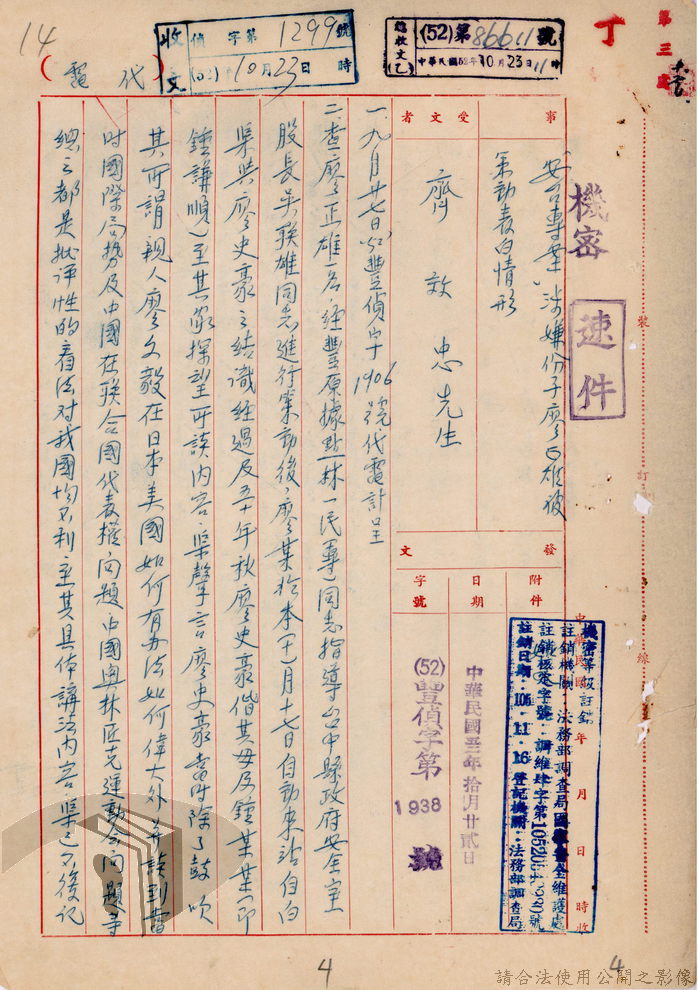 第三
丁
(52)第86611號
總收文(乙)
中華民國52年10月23日11時
收文
偵字第1299號
(52)10月23日 時
14
(代電)
機密
速件
裝
訂
線
事
「安台專案」涉嫌份子廖正雄被
策動表白情形
受文者
齊效忠先生
發文
附件
日期
中華民國五二年拾月廿貳日
字號
(52)豐偵字第1938號
中華民國 年 月 日 時收
機密等級註銷
註銷機關:法務部調查局
註銷日期:106.11.16
登記機關:法務部調查局
一、九月廿七日(52)豐偵字1906號代電計呈
二、查廖正雄一名,經豐原據點林一民(專)同志指導台中縣政府安全室
股長吳联雄同志進行策動後,廖某於本(十)月十七日自動來站自白
渠與廖史豪之結識經過及五十年秋廖史豪偕其母及鍾某某(即
鍾謙順)至其家探望所談內容,渠聲言廖史豪當時除了鼓吹
其所謂親人廖文毅在日本美國如何有办法如何偉大外,并談到當
時國際局勢及中國在联合國代表權問題中國奧林匹克運動会問題等
總之都是批評性的看法对我國均不利至其具体講法內容,渠已不後記
4
4
請合法使用公開之影像